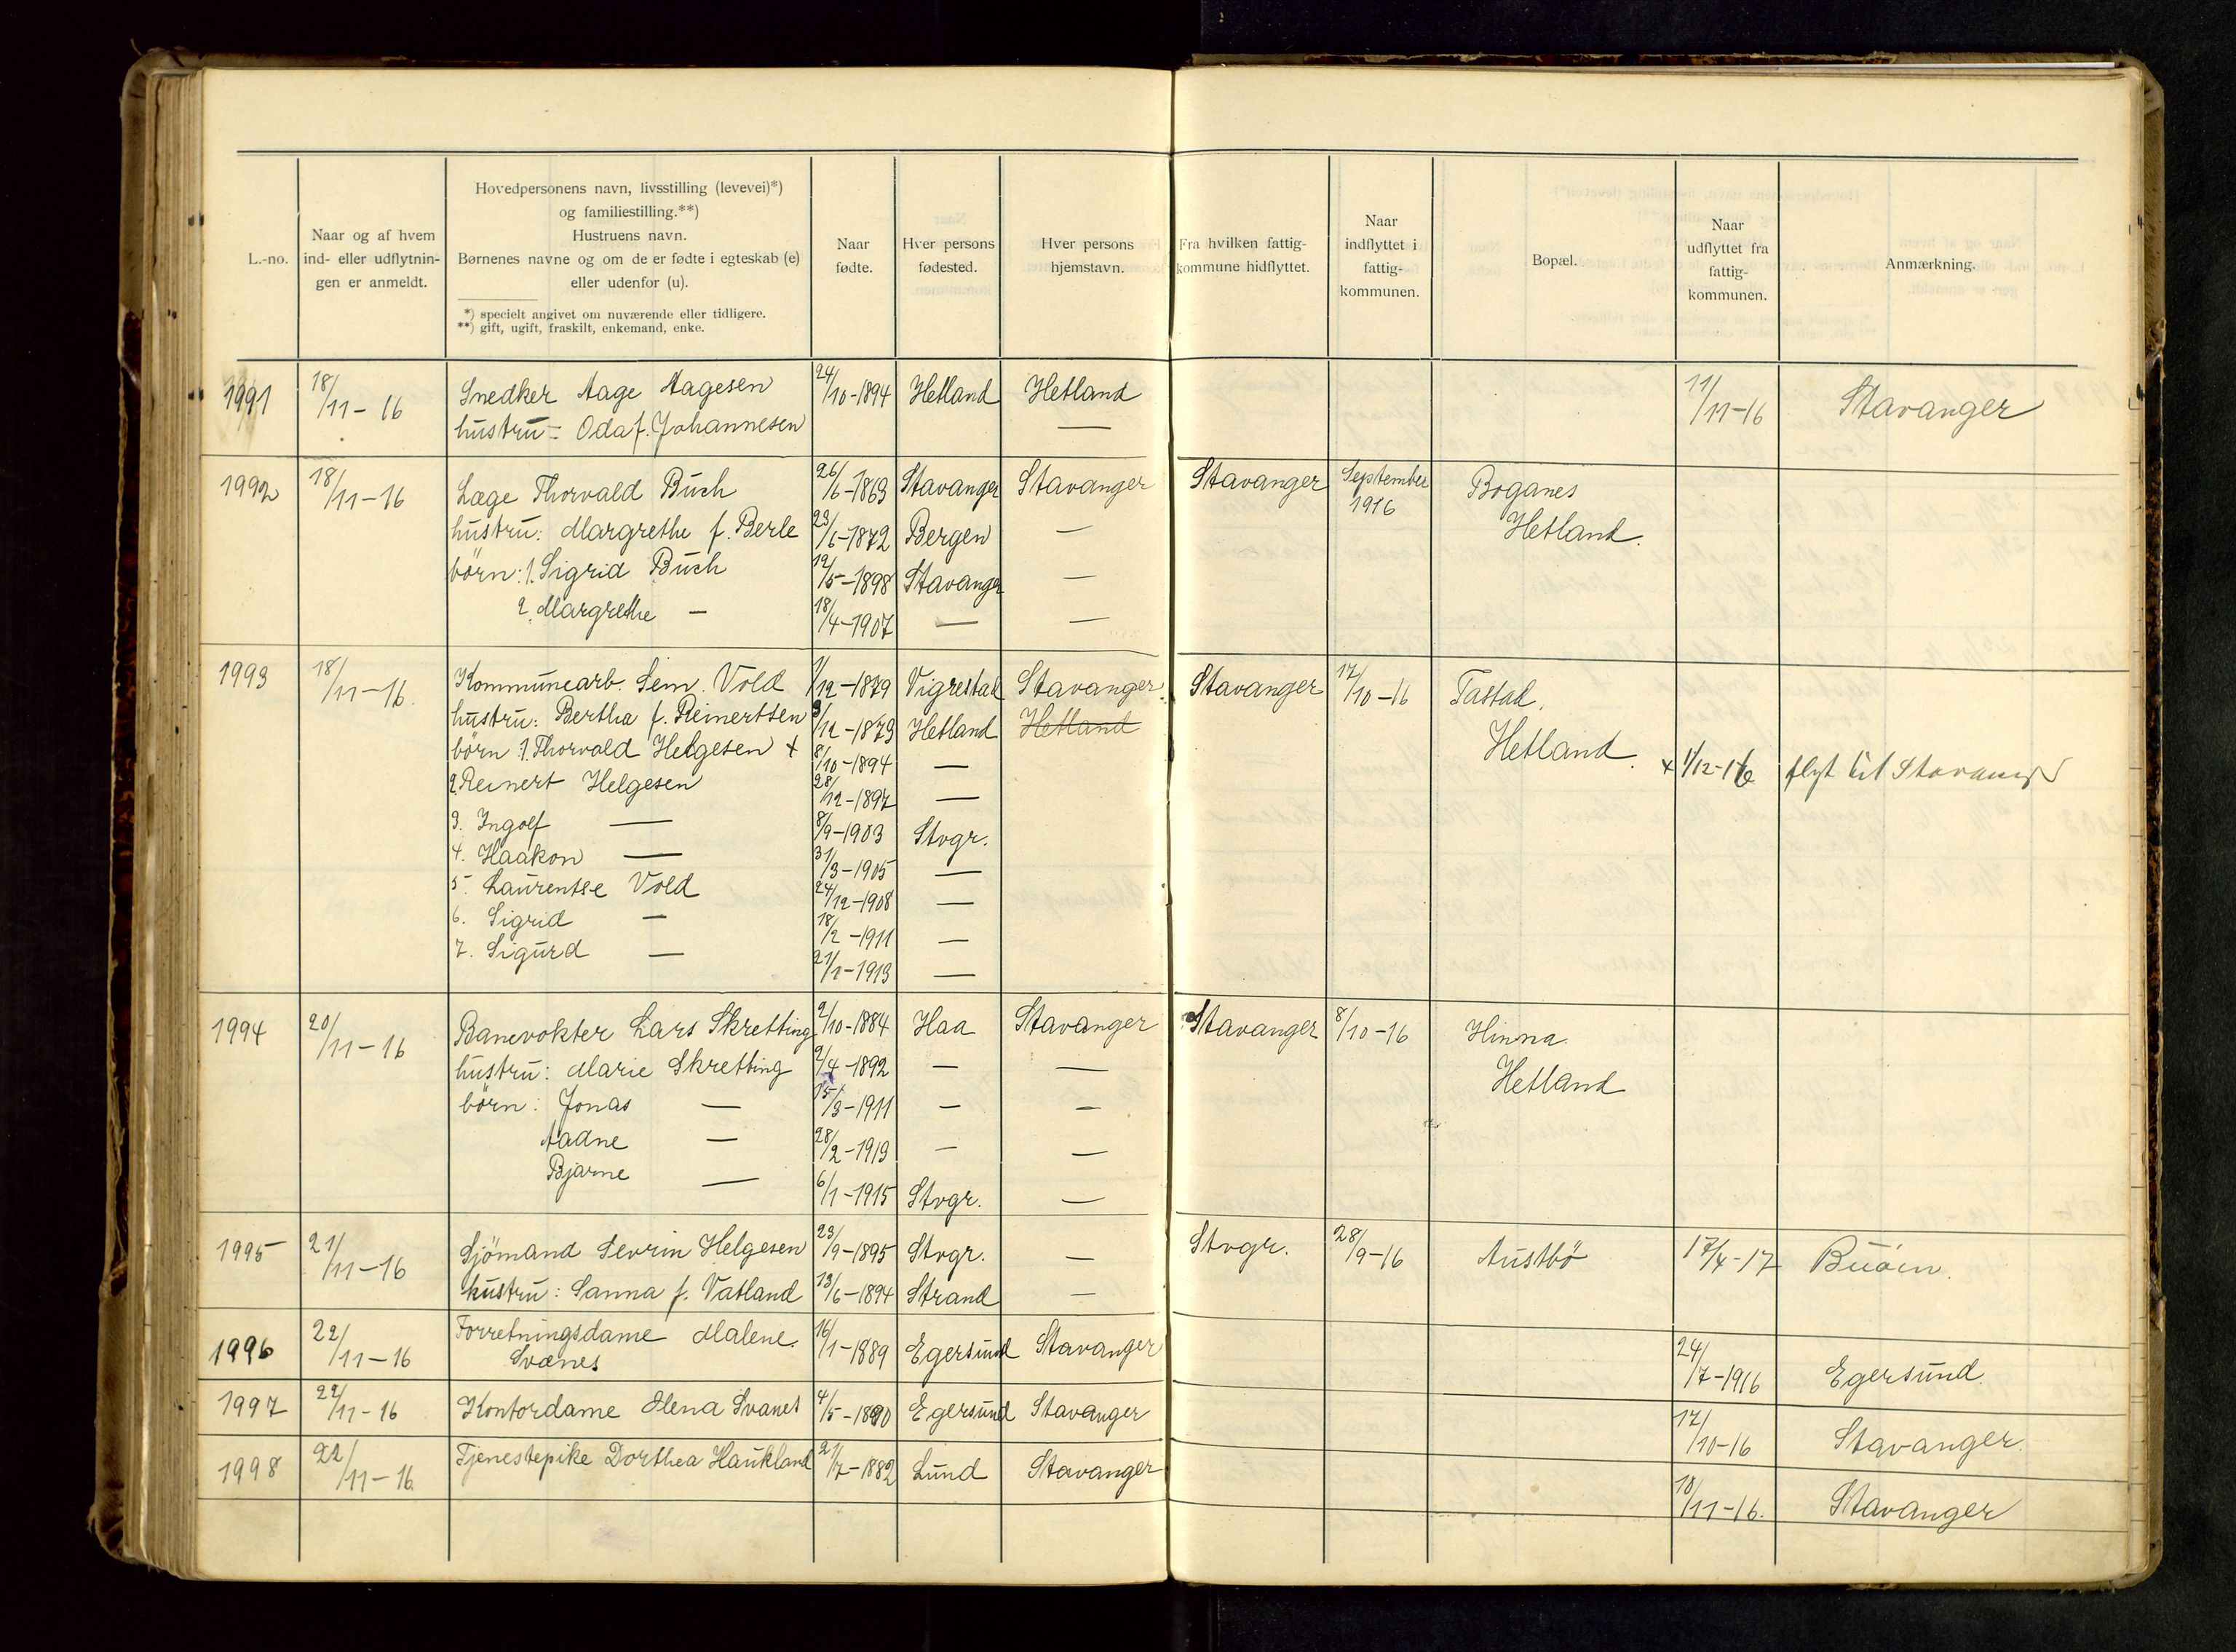 L.-no.
Naar og af hvem
ind- eller udflytnin-
gen er anmeldt.
Hovedpersonens navn, livsstilling (levevei)*)
og familiestilling.**)
Hustruens navn.
Børnenes navne og om de er fødte i egteskab (e)
eller udenfor (u).
*) specielt angivet om nuværende eller tidligere.
**) gift, ugift, fraskilt, enkemand, enke.
Naar
fødte.
Hver persons
fødested.
Hver persons
hjemstavn.
Fra hvilken fattig-
kommune hidflyttet.
Naar
indflyttet i
fattig-
kommunen.
Bopæl.
Naar
udflyttet fra
fattig-
kommunen.
Anmærkning.
1991 18/11-16 Snedker Aage Aagesen 24/10-1894 Hetland Hetland 11/11-16 Stavanger
hustru = Oda f. Johannesen —
1992 18/11-16 Læge Thorvald Buch 26/6-1869 Stavanger Stavanger Stavanger September 1916 Boganes
hustru: Margrethe f. Berle 23/6-1872 Bergen — Hetland.
børn: 1. Sigrid Buch 12/5-1898 Stavanger —
2. Margrethe — 18/4-1907 — —
1993 18/11-16. Kommunearb. Sem. Vold 1/12-1879 Vigrestad Stavanger. Stavanger 17/10-16 Tastad.
hustru: Bertha f. Reinertsen 3/12-1873 Hetland Hetland Hetland.
børn 1. Thorvald Helgesen + 8/10-1894 — x 1/12-16 flyt til Stavanger
2. Reinert Helgesen 28/12-1897 —
3. Ingolf — 8/9-1903 Stvgr.
4. Haakon — 31/3-1905 —
5. Laurentse Vold 24/12-1908 —
6. Sigrid — 18/2-1911 —
7. Sigurd — 21/1-1913 —
1994 20/11-16 Banevokter Lars Skretting 2/10-1884 Haa Stavanger Stavanger 8/10-16 Hinna.
hustru: Marie Skretting 2/4-1892 — — Hetland
børn: Jonas — 15/3-1911 — —
Aadne — 28/2-1913 — —
Bjarne — 6/1-1915 Stvgr. —
1995 21/11-16 Sjömand Sevrin Helgesen 23/9-1895 Stvgr. — Stvgr. 28/9-16 Austbö 17/4-17 Buöen.
hustru: Sanna f. Vatland 13/6-1894 Strand —
1996 22/11-16 Forretningsdame Malene. 16/1-1889 Egersund Stavanger 24/7-1916 Egersund.
Svanes
1997 22/11-16 Kontordame Olena Svanes 4/5-1890 Egersund Stavanger 17/10-16 Stavanger.
1998 22/11-16. Tjenestepike Dorthea Haukland 21/7-1882 Lund Stavanger 18/11-16. Stavanger